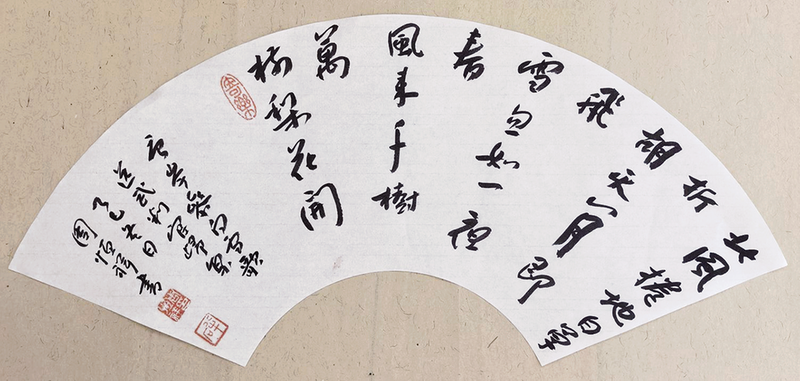 北風捲地白草
折
胡天八月即
飛
雪忽如一夜
春
風來千樹
萬
樹梨花開
唐岑參白雪歌
送武判官歸京
乙巳冬日
周恒書